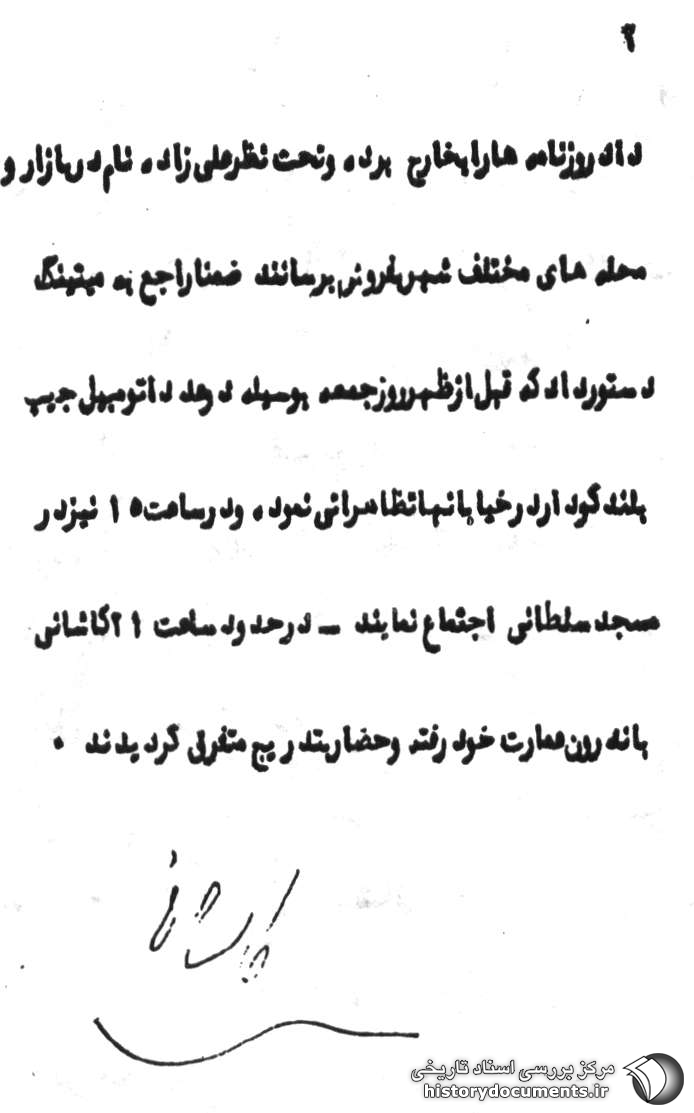 ۲
داد روزنامه ها را بخارج برده وتحت نظر علی زاده نام در بازار و
محله های مختلف شهر بفروش برسانند ضمنا راجع به میتینگ
دستور داد که قبل از ظهر روز جمعه بوسیله دو عدد اتومبیل جیپ
بلندگو دار در خیابانها تظاهراتی نموده و در ساعت ۱۵ نیز در
مسجد سلطانی اجتماع نمایند ــ در حدود ساعت ۲۱ کاشانی
باندرون عمارت خود رفته و حضار بتدریج متفرق گردیدند .
مرکز بررسی اسناد تاریخی
historydocuments.ir